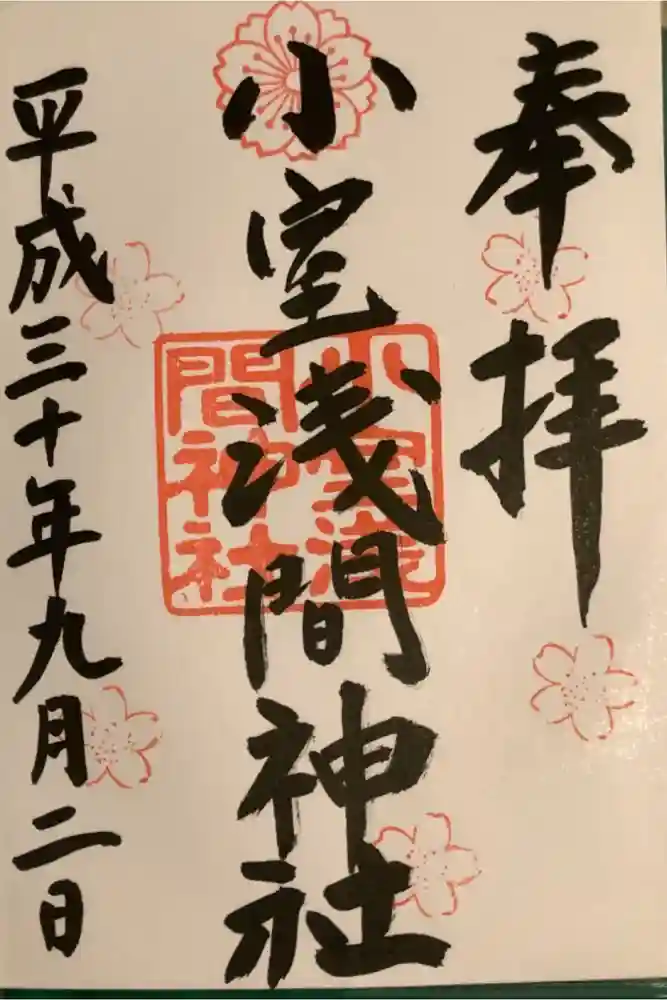 奉拝
小室浅間神社
小室浅
間神社
平成三十年九月二日